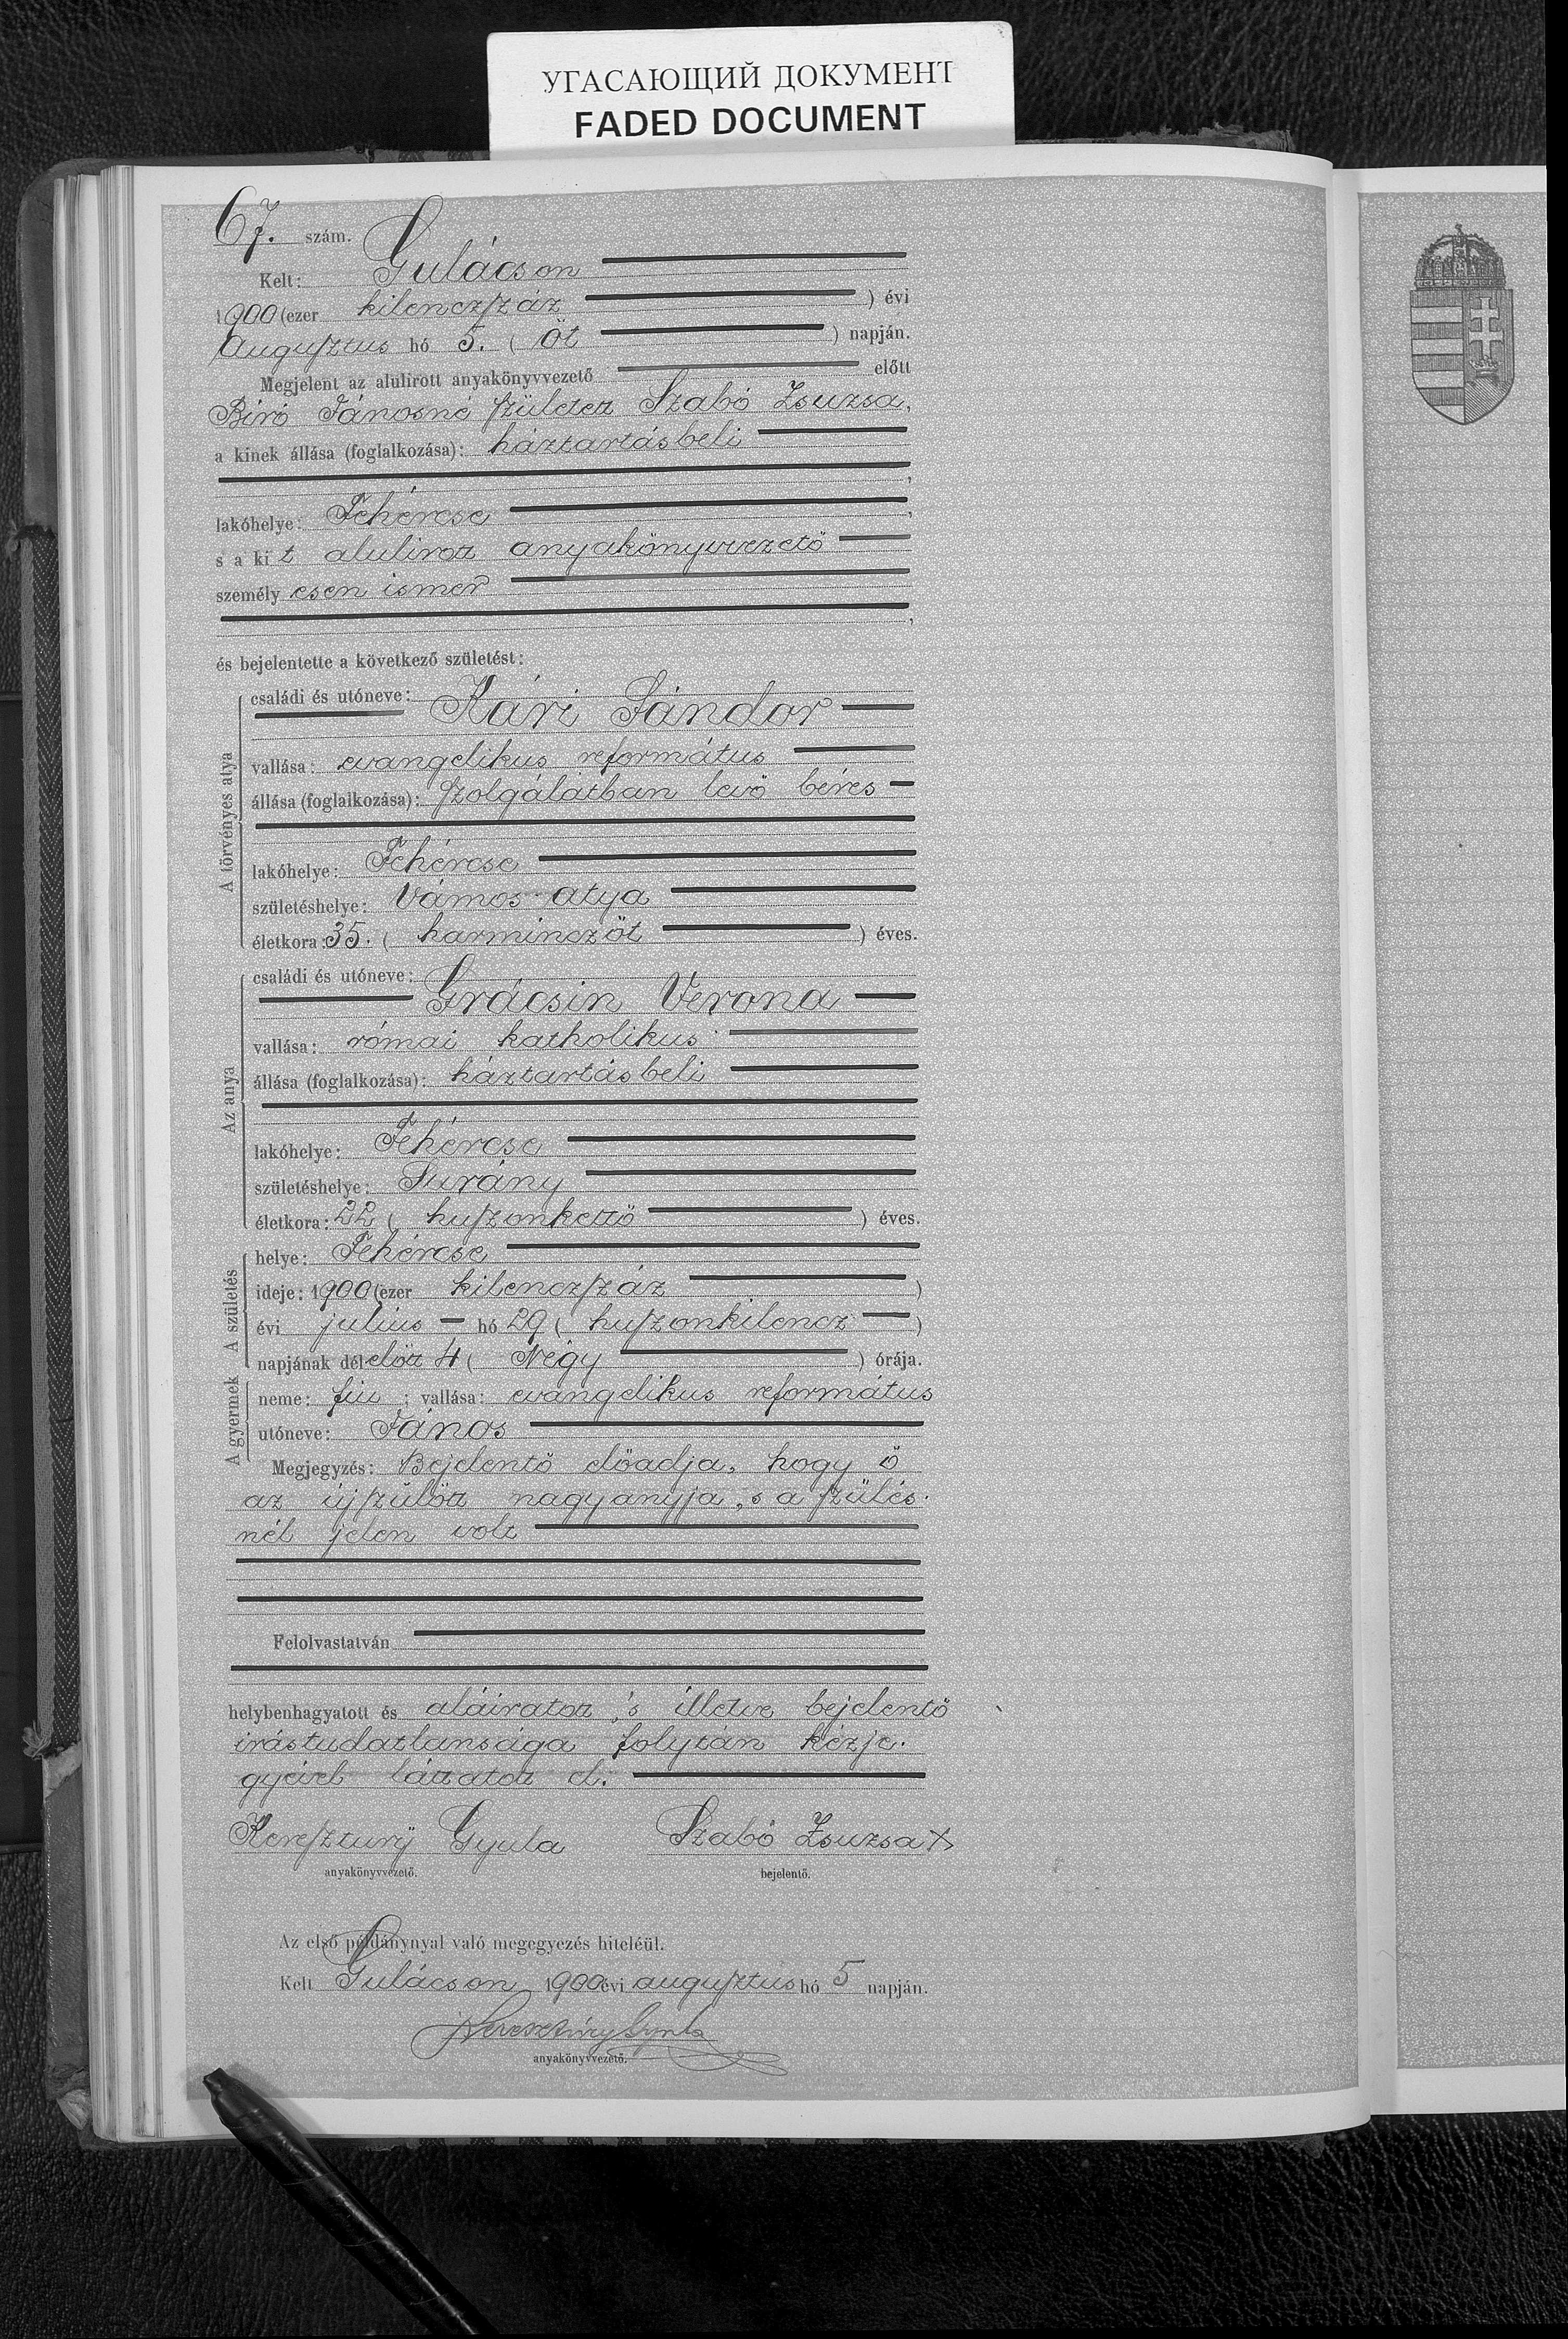 УГАСАЮЩИЙ ДОКУМЕНТ
FADED DOCUMENT
67. szám.
Kelt: Gulácson
1900 (ezer kilenczszáz ) évi
Augusztus hó 5. ( öt ) napján.
Megjelent az alulirott anyakönyvvezető előtt
Biró Jánosné született Szabó Zsuzsa,
a kinek állása (foglalkozása): háztartásbeli
,
lakóhelye: Fehércse ,
s a kit alulirott anyakönyvvezető
személyesen ismer
,
és bejelentette a következő születést:
A törvényes atya
családi és utóneve:
Kári Sándor
vallása: evangelikus református
állása (foglalkozása): szolgálatban levő béres
lakóhelye: Fehércse
születéshelye: Vámos-atya
életkora: 35. ( harminczöt ) éves.
Az anya
családi és utóneve:
Grácsin Verona
vallása: római katholikus
állása (foglalkozása): háztartásbeli
lakóhelye: Fehércse
születéshelye: Surány
életkora: 22 ( huszonkettő ) éves.
A születés
helye: Fehércse
ideje: 1900 (ezer kilenczszáz )
évi julius hó 29 ( huszonkilencz )
napjának délelőtt 4 ( Négy ) órája.
A gyermek
neme: fiu ; vallása: evangelikus református
utóneve: János
Megjegyzés: Bejelentő előadja, hogy ő
az újszülött nagyanyja, s a szülés-
nél jelen volt
Felolvastatván
helybenhagyatott és aláiratott, 's illetve bejelentő
irástudatlansága folytán kézje-
gyével láttatott el.
Keresztury Gyula Szabó Zsuzsa X
anyakönyvvezető. bejelentő.
Az első példánynyal való megegyezés hiteléül.
Kelt Gulácson 1900 évi augusztus hó 5 napján.
Keresztúry Gyula
anyakönyvvezető.